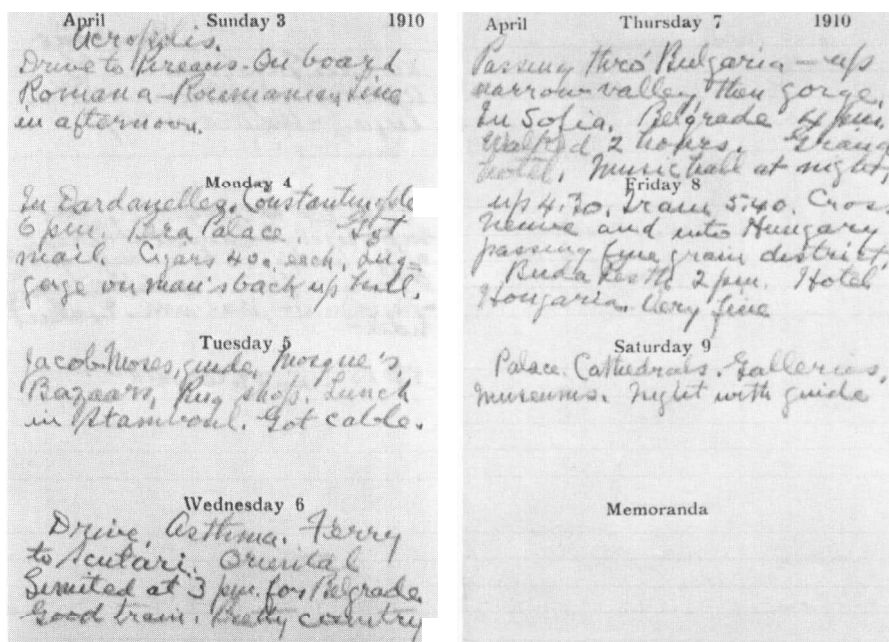 April Sunday 3 1910
Acropolis.
Drive to Piraeus - On board
Romana - Roumanian line
in afternoon.
Monday 4
In Dardanelles. Constantinople
6 pm. Pera Palace. Got
mail. Cigars 40c. each. Lug-
gage on man's back up hill.
Tuesday 5
Jacob Moses, guide, Mosque's,
Bazaars, Rug shop. Lunch
in Stamboul. Got cable.
Wednesday 6
Drive. Asthma. Ferry
to Scutari. Oriental
Limited at 3 pm. for Belgrade
Good train. Pretty country
April Thursday 7 1910
Passing thro' Bulgaria - up
narrow valley, then gorge.
In Sofia. Belgrade 4 pm.
Walked 2 hours. Grand
hotel. Music hall at night,
Friday 8
up 4.30. Train 5.40. Cross
and into Hungary
passing fine grain district
Buda Pesth 2 pm. Hotel
Hongaria. Very fine
Saturday 9
Palace. Cathedrals. Galleries,
museums. Night with guide
Memoranda